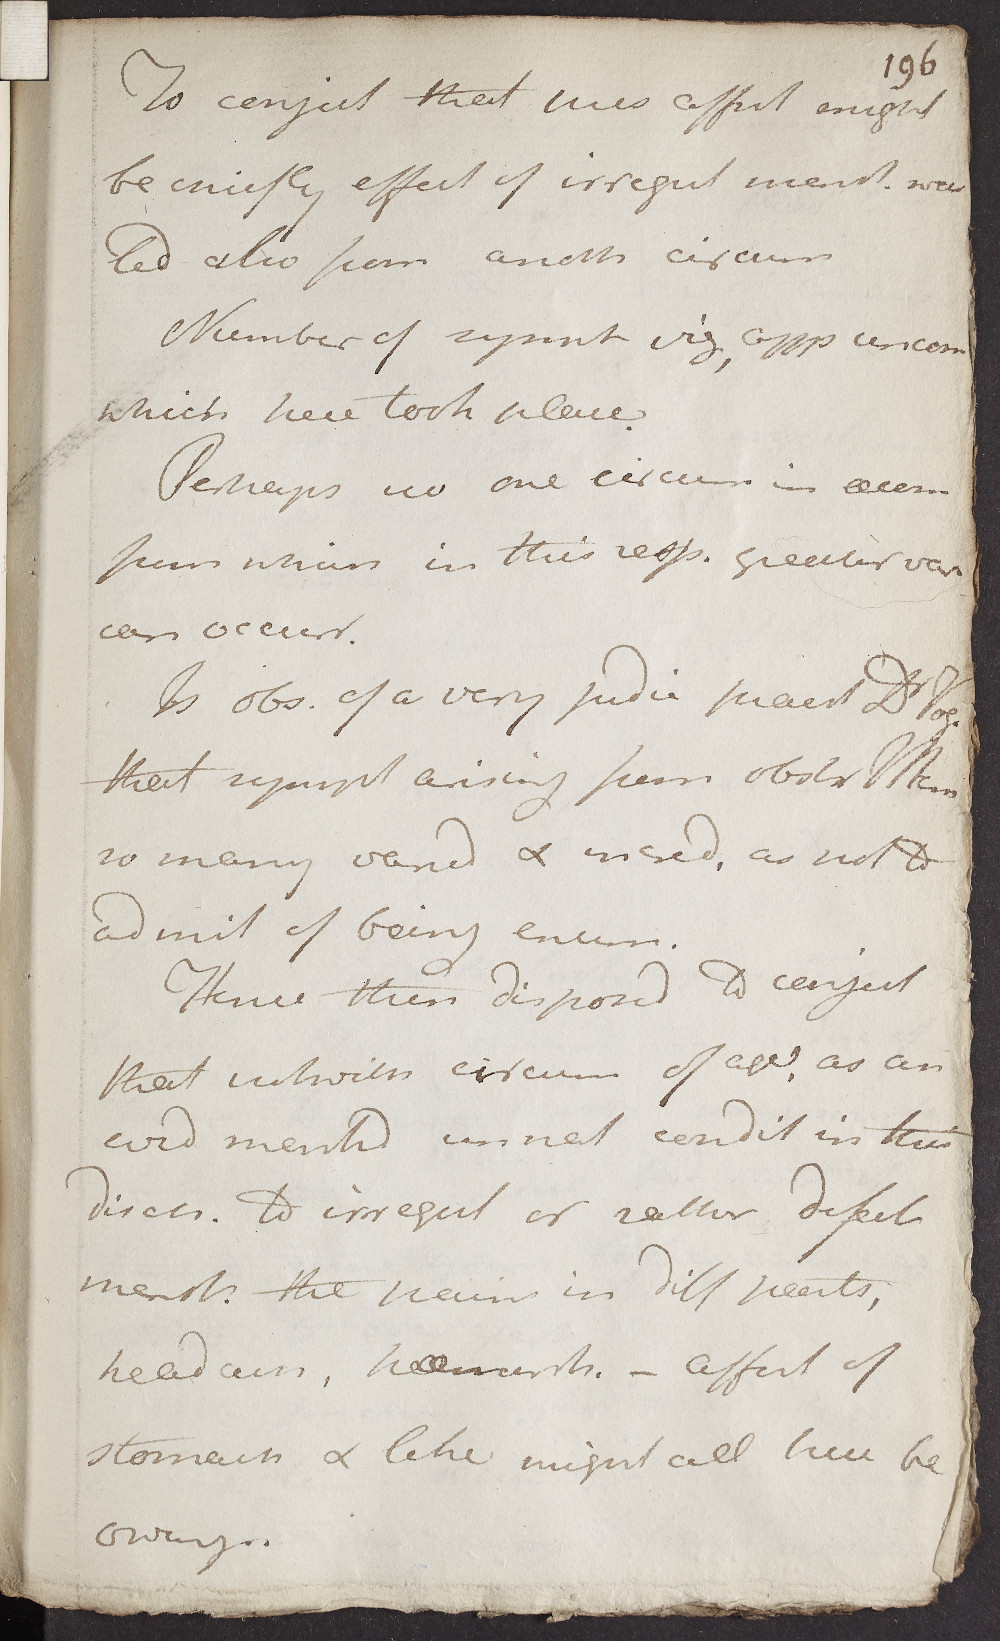 196
To conject that this affect might
be chiefly effect of irregul menst. was
led also from anoth circum
Number of sympt vig, app uncom
which here took place.
Perhaps no one circum in oecon
from which in this resp. greater var
can occur.
Is obs. of a very judic pract Dr Vog.
that sympt arising from obstr Men
so many varied & incred, as not to
admit of being enum.
Hence then disposed to conject
that notwith circum of age, as an
and mentd unnat condit in this
disch. to irregul or rather defect
menst. the pains in diff parts,
headach, haemorrh. - affect of
stomach & like might all here be
owing.